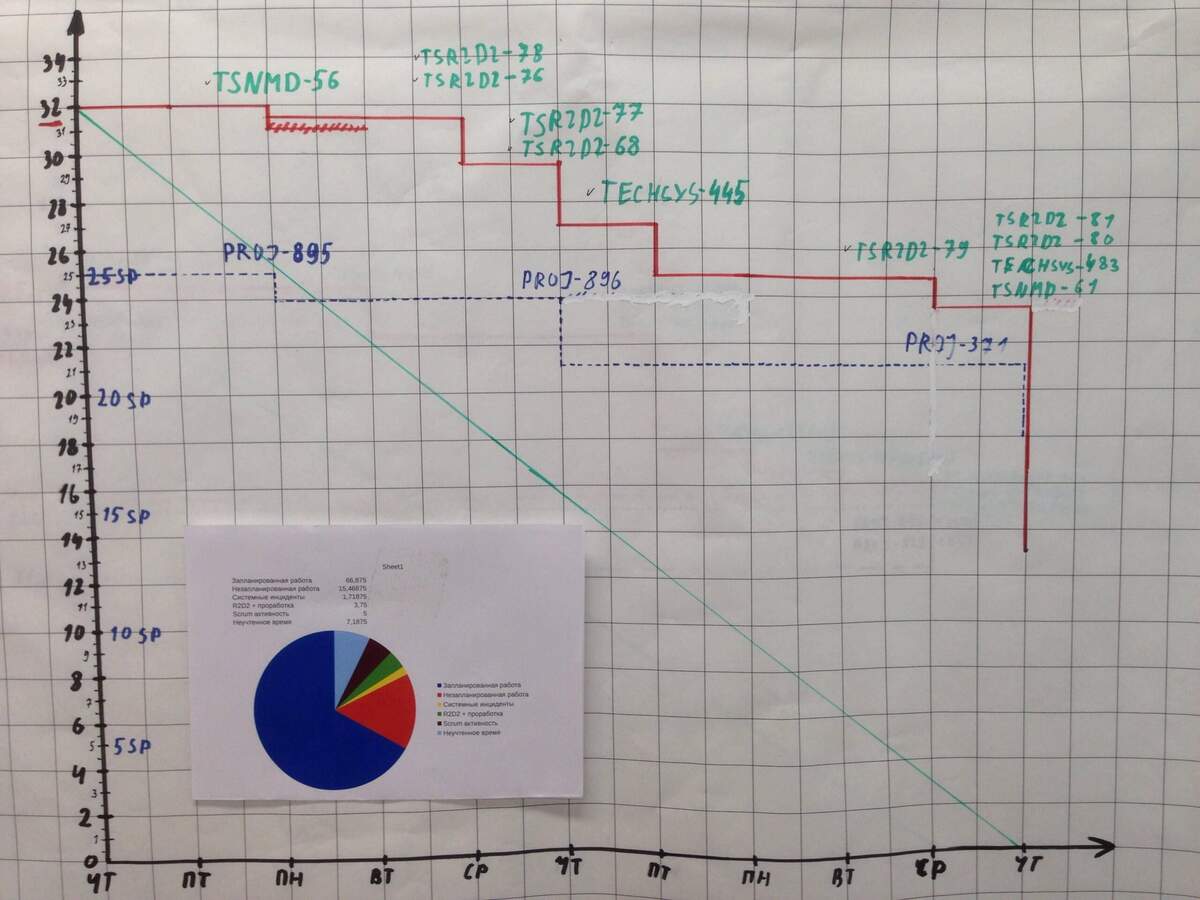 34
33
32
31
30
29
28
27
26
25
24
23
22
21
20
19
18
17
16
15
14
13
12
11
10
9
8
7
6
5
4
3
2
1
0
25 SP
20 SP
15 SP
10 SP
5 SP
TSNMD-56
TSR2D2-78
TSR2D2-76
TSR2D2-77
TSR2D2-68
TECHSYS-445
TSR2D2-79
TSR2D2-81
TSR2D2-80
TECHSYS-483
TSNMD-61
PROJ-895
PROJ-896
PROJ-371
Sheet1
Запланированная работа 66,875
Незапланированная работа 15,46875
Системные инциденты 1,71875
R2D2 + проработка 3,75
Scrum активность 5
Неучтенное время 7,1875
Запланированная работа
Незапланированная работа
Системные инциденты
R2D2 + проработка
Scrum активность
Неучтенное время
ЧТ ПТ ПН ВТ СР ЧТ ПТ ПН ВТ СР ЧТ